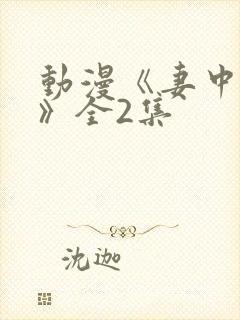 動漫《妻中
》全2集
沈迦